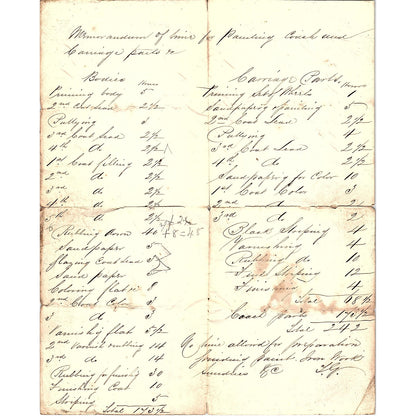 Memorandum of time for Painting Coach and
Carriage parts &c
Bodies
Hours
Priming body 5
2nd Coat Lead 2 1/2
Puttying 3
3rd Coat Lead 2 1/2
4th do 2 1/2
1st Coat filling 2 1/2
2nd do 2 1/2
3rd do 2 1/2
4th do 2 1/2
5th do 2 1/2
Rubbing down 40
+8=45
Sandpaper 5
Coat Lead 3
Sand paper
Coloring flat
2nd Coat Color 3
3 do 3
Varnishg flat 5 1/2
2nd Varnish rubbing 14
3d do 14
Rubbing to finish 30
Finishing Coat 10
Striping 5
Total 173 1/2
Carriage Parts
Hours
Priming Wheels 5
Sandpaperg & puttying 5
2nd Coat Lead 2 1/2
Puttying 4
3rd Coat Lead 2 1/2
4th do 2 1/2
Sandpaperg for Color 10
1st Coat Color 3
2nd do 2
3rd do 2
Black Striping 4
Varnishing 4
Rubbing do 10
Fine Striping 12
Finishing 4
Total 68 1/2
Coach parts 173 1/2
Total 242
No time allowed for preparation
grinding paint. Iron Work
sundries &C